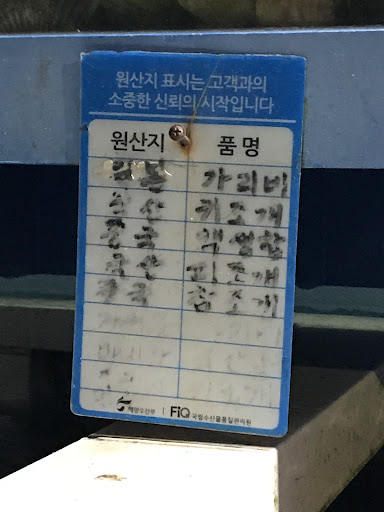 원산지 표시는 고객과의
소중한 신뢰의 시작입니다
원산지 품명
일본 가리비
국산 키조개
중국 백생합
국산 피조개
중국 참조개
해양수산부 | FiQ 국립수산물품질관리원